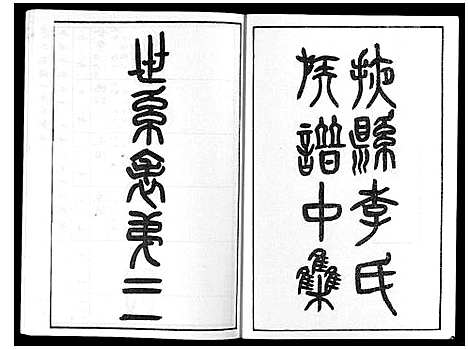 掖縣李氏
族譜中集
世系表第二